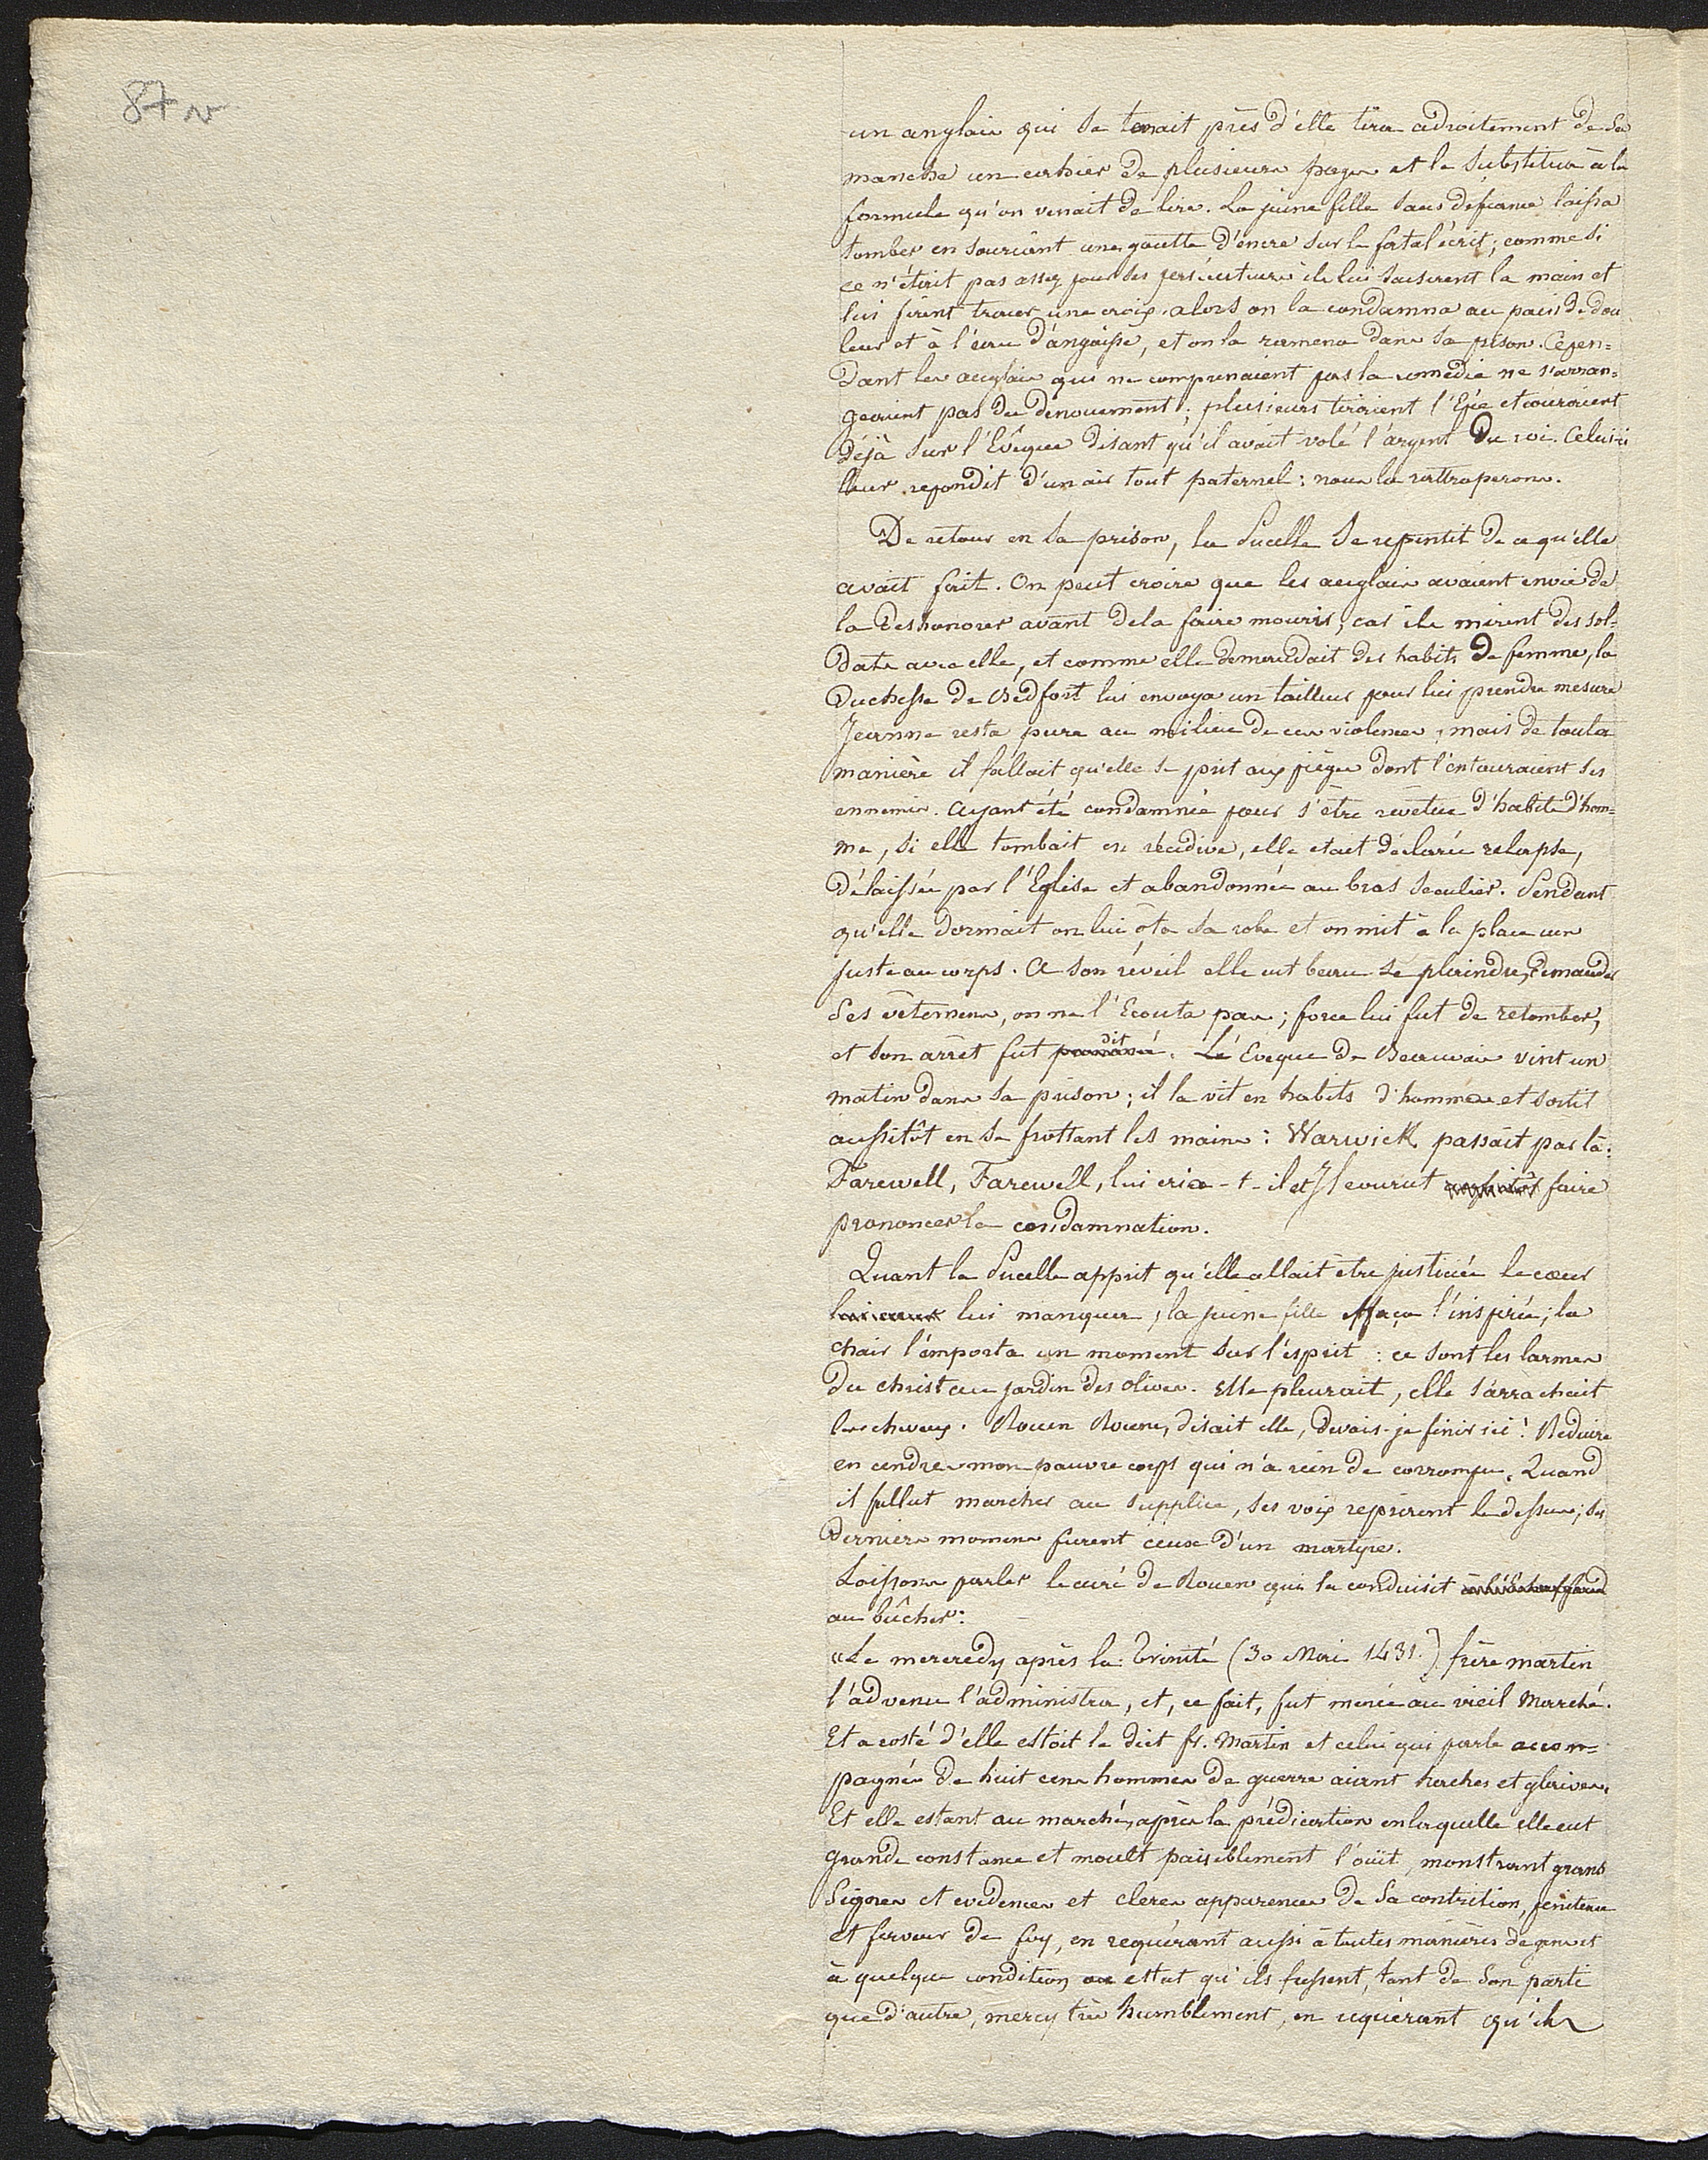 87 v
un anglais qui se tenait près d'elle tira adroitement de sa
manche un cahier de plusieurs pages et le substitua à la
formule qu'on venait de lire. La jeune fille sans défiance laissa
tomber en souriant une goutte d'encre sur le fatal écrit; comme si
ce n'était pas assez pour ses persécuteurs ils lui saisirent la main et
lui firent tracer une croix. alors on la condamna au pain de dou
leur et à l'eau d'angoisse, et on la ramena dans sa prison. Cepen=
dant les anglais qui ne comprenaient pas la comédie ne s'arran=
geaient pas du dénouement; plusieurs tiraient l'Epée et couraient
déjà sur l'Evêque disant qu'il avait volé l'argent du roi. Celui-ci
leur repondit d'un air tout paternel: nous la rattraperons.
De retour en sa prison, la Pucelle se repentit de ce qu'elle
avait fait. On peut croire que les anglais avaient envie de
la deshonorer avant de la faire mourir, car ils mirent des sol=
dats avec elle, et comme elle demandait des habits de femme, la
Duchesse de Bedfort lui envoya un tailleur pour lui prendre mesure
Jeanne resta pure au milieu de ces violences, mais de toute
manière il fallait qu'elle se prit aux pièges dont l'entouraient ses
ennemis. Ayant été condamnée pour s'être revêtue d'habits d'hom=
me, si elle tombait en récidive, elle etait déclarée relapse,
délaissée par l'Eglise et abandonnée au bras seculier. Pendant
qu'elle dormait on lui ôta sa robe et on mit à la place un
juste au corps. A son réveil elle eut beau se plaindre, demander
ses vêtemens, on ne l'Ecouta pas; force lui fut de retomber,
et son arrêt fut dit. Lé Eveque de Beauvais vint un
matin dans sa prison; il la vit en habits d'hommes et sortit
aussitôt en se frottant les mains: Warwick passait par là:
Farewell, Farewell, lui cria-t-il et Il courut aussitôt faire
prononcer la condamnation.
Quant la Pucelle apprit qu'elle allait être justiciée le cœur
lui manqua, la jeune fille effaça l'inspirée; la
chair l'emporta un moment sur l'esprit: ce sont les larmes
du christ au jardin des olives. Elle pleurait, elle s'arrachait
les cheveux. Rouen Rouen, disait elle, devais-je finir ici! Réduire
en cendres mon pauvre corps qui n'a rien de corrompu. Quand
il fallut marcher au supplice, ses voix reprirent le dessus; ses
derniers momens furent ceux d'un martyre.
Laissons parler le curé de Rouen qui la conduisit à l'échaffaud
au bûcher:
"Le mercredy après la Trinité (30 Mai 1431.) frère martin
l'advenu l'administra, et, ce fait, fut menée au vieil Marché.
Et a costé d'elle estoit le dict fr. Martin et celui qui parle accom=
pagnés de huit cens hommes de guerre aiant haches et glaives.
Et elle estant au marché, après la prédication en laquelle elle eut
grande constance et moult paisiblement l'oüit, monstrant grans
signes et evidences et cleres apparences de sa contrition, penitence
et ferveur de foy, en requérant aussi à toutes manières de gens et
à quelque condition ou estat qu'ils fussent, tant de son parti
que d'autre, mercy très humblement, en requérant qu'ils